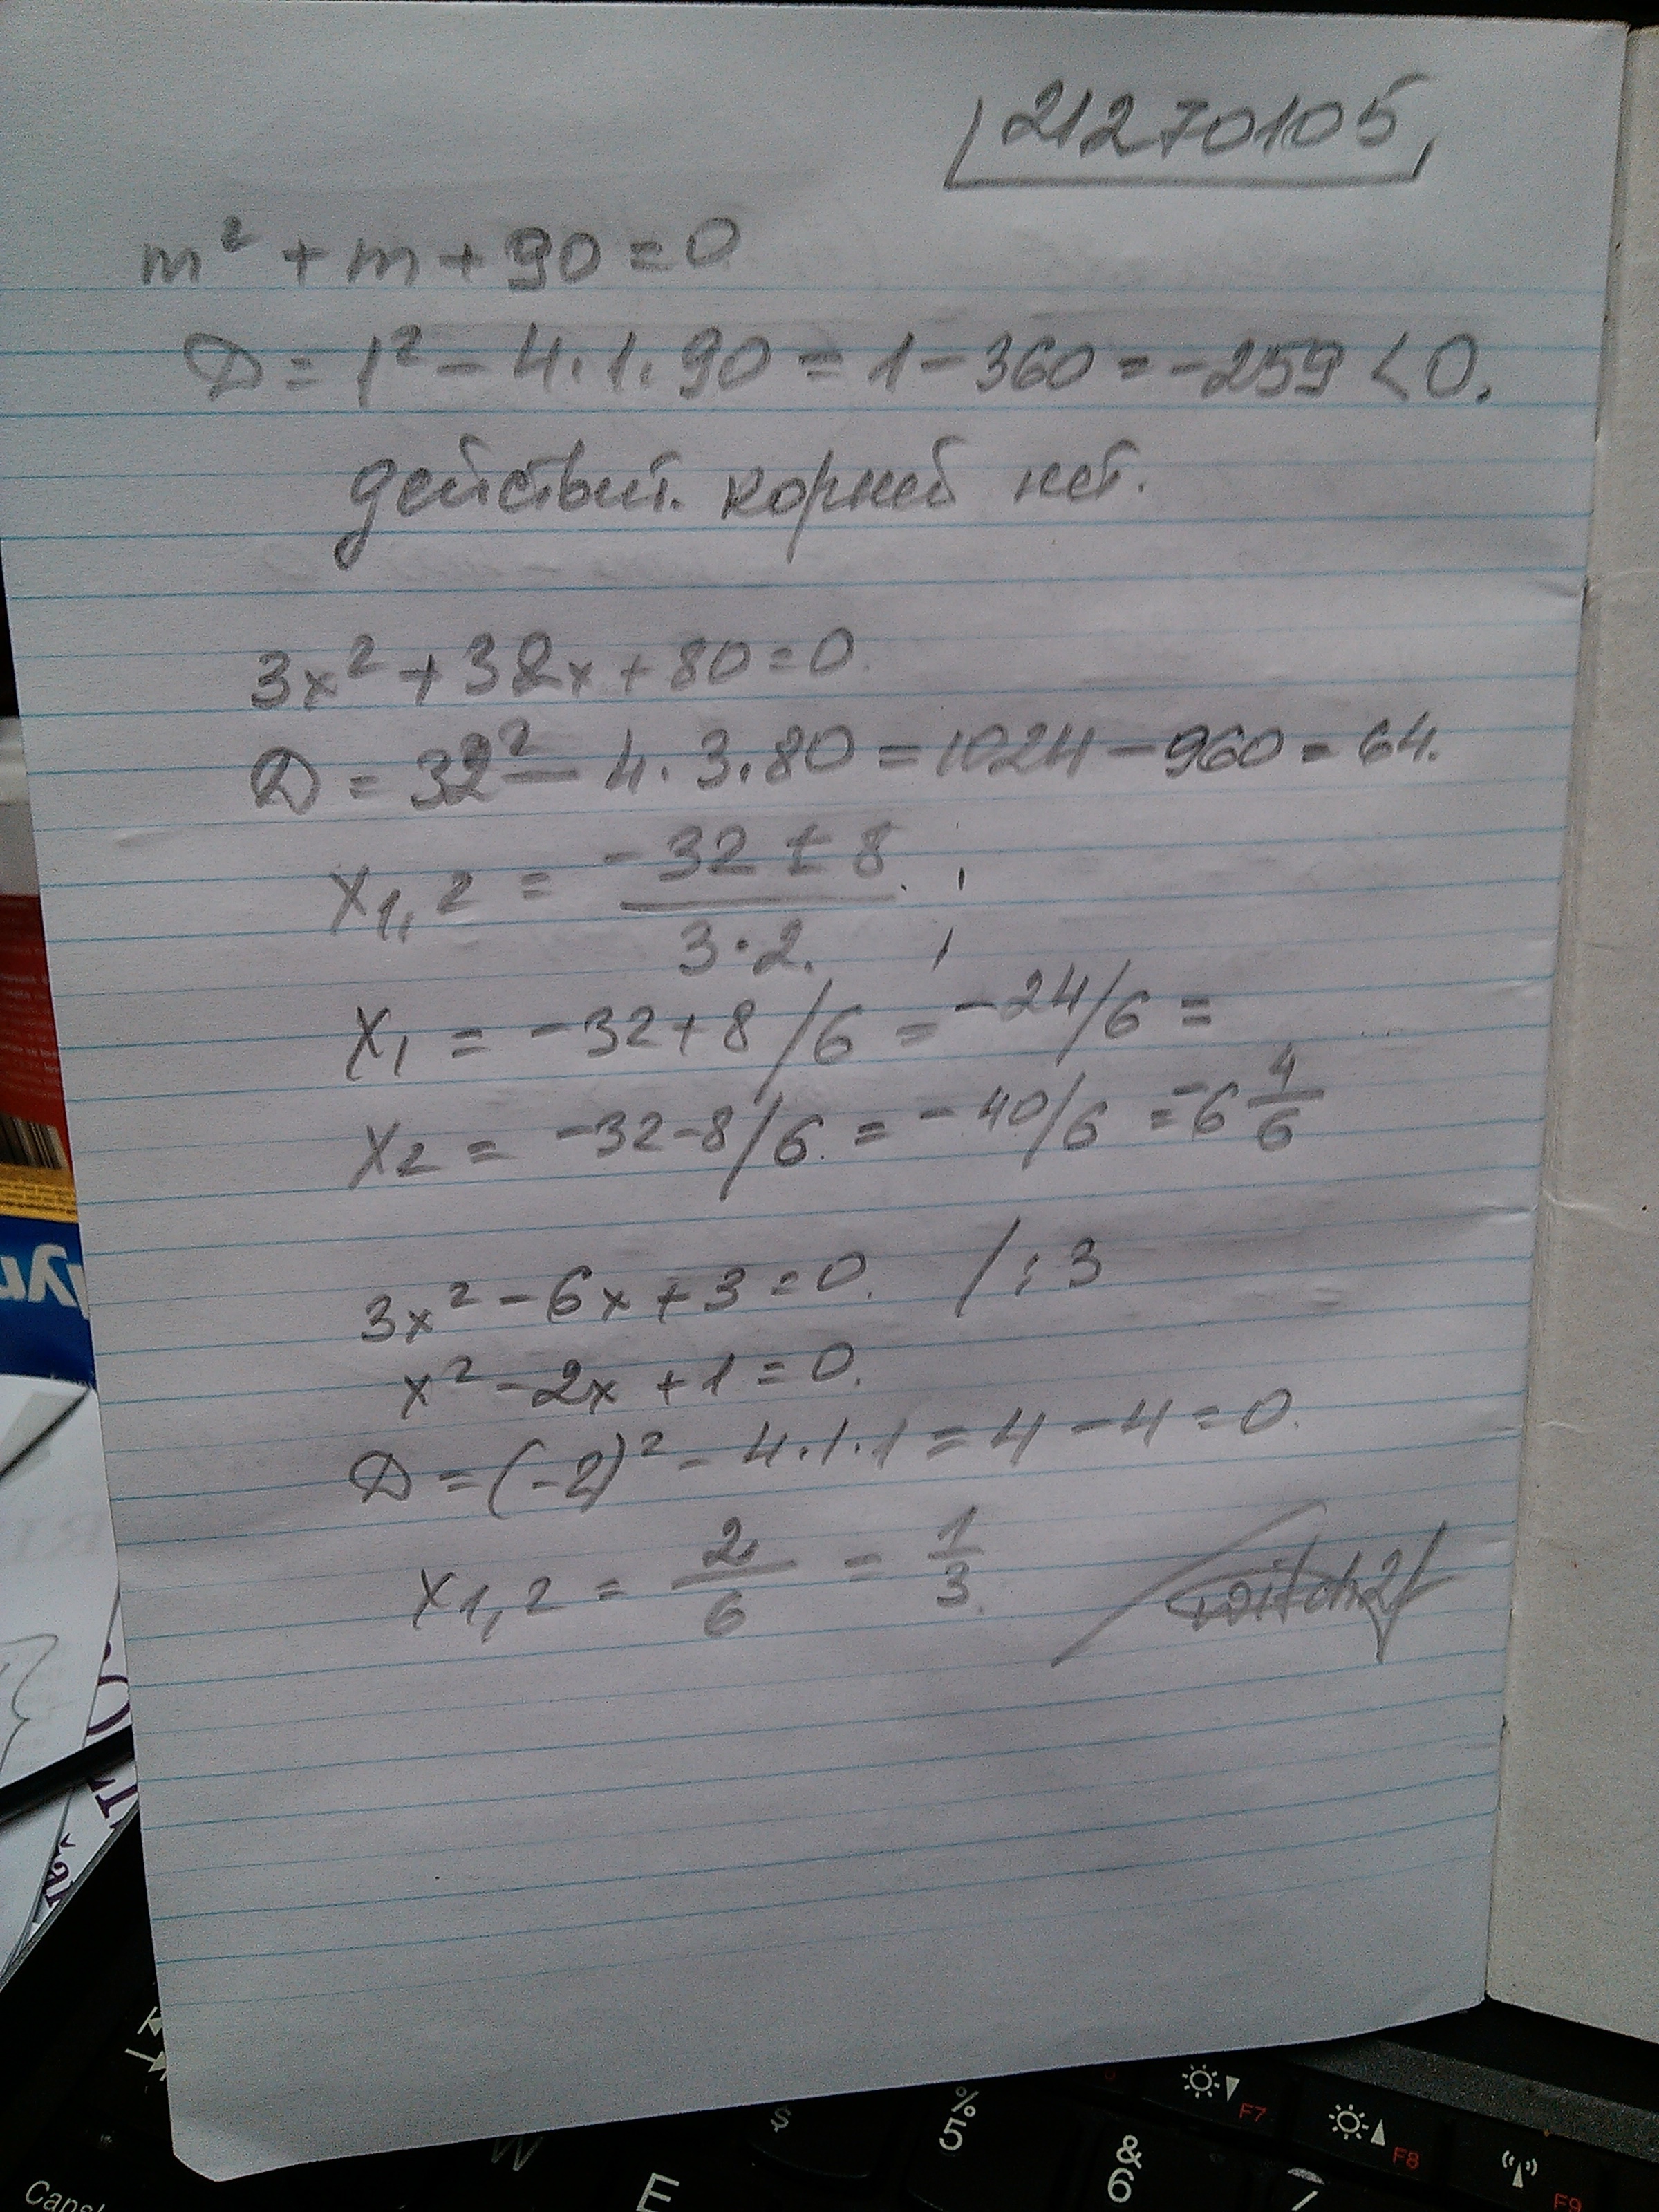 21270105
m² + m + 90 = 0
D = 1² - 4·1·90 = 1 - 360 = -259 < 0.
действит. корней нет.
3x² + 32x + 80 = 0.
D = 32² - 4·3·80 = 1024 - 960 = 64.
x1,2 = (-32 ± 8)/(3·2.)
x1 = -32 + 8/6 = -24/6 =
x2 = -32 - 8/6 = -40/6 = -6 4/6
3x² - 6x + 3 = 0. /:3
x² - 2x + 1 = 0.
D = (-2)² - 4·1·1 = 4 - 4 = 0.
x1,2 = 2/6 = 1/3.
$
%
5
&
6
7
W
E
F7
F8
F9